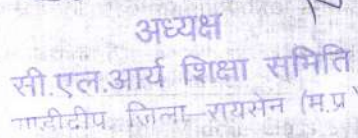 अध्यक्ष
सी.एल.आर्य शिक्षा समिति
जिला-रायसेन (म.प्र)